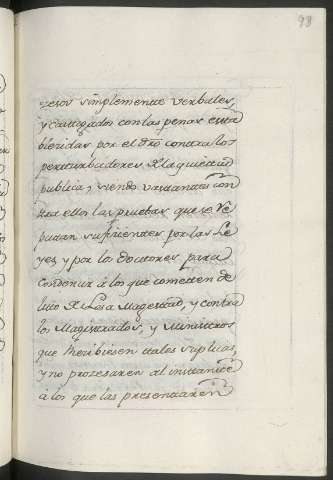 98
zesos simplemente verbales,
y castigados con las penas esta
blecidas por el dro contra los
perturbadores de la quietud
publica, siendo vastantes con
tra ellos las pruebas que se re
putan suficientes por las Le
yes, y por los doctores para
condenar á los que cometen de
lito de Lesa Magestad, y contra
los Magistrados, y Ministros
que recibiesen tales suplicas,
y no prozesaren al instante
á los que las presentaren